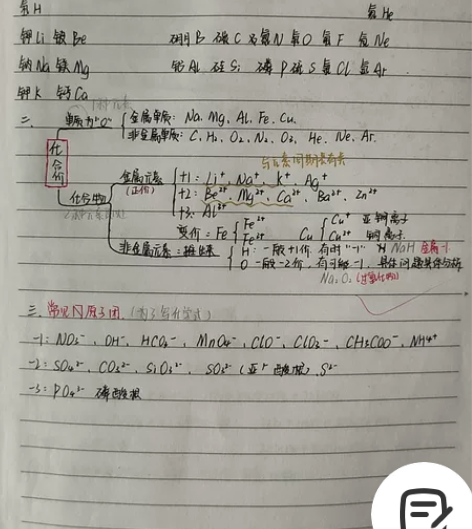 氢H 氦He
钾Li 铍Be 硼B 碳C 氮N 氧O 氟F 氖Ne
钠Na 镁Mg 铝Al 硅Si 磷P 硫S 氯Cl 氩Ar
钾K 钙Ca
二、
单质为"0" 金属单质：Na. Mg. Al. Fe. Cu.
非金属单质：C. H₂. O₂. N₂. O₃. He. Ne. Ar.
化合价
与元素周期表有关
化合物 金属元素(正价) +1：Li⁺. Na⁺. K⁺. Ag⁺
+2：Be²⁺. Mg²⁺. Ca²⁺. Ba²⁺. Zn²⁺
+3：Al³⁺
变价：Fe Fe²⁺ Fe³⁺ Cu Cu⁺ 亚铜离子 Cu²⁺ 铜离子
非金属元素： H：一般+1价. 有时"-1" NaH 金属-1
O 一般-2价. 有可能-1. 具体问题具体分析
Na₂O₂(过氧化物)
三. 常见的原子团.
-1：NO₃⁻. OH⁻. HCO₃⁻. MnO₄⁻. ClO⁻. ClO₃⁻. CH₃COO⁻. NH⁴⁺
-2：SO₄²⁻. CO₃²⁻. SiO₃²⁻. SO₃²⁻ (亚 酸根). S²⁻
-3：PO₄³⁻ 磷酸根